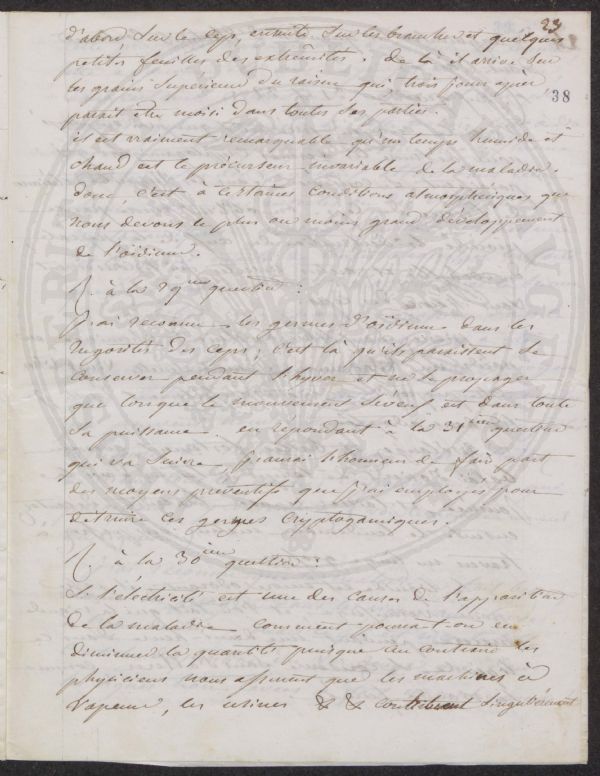 23
38
d'abord sur le cep, ensuite sur les branches et quelques
petites feuilles des extrêmités. de là il arrive sur
les grains supérieurs du raisin qui, trois jours après
parait être moisi dans toutes ses parties.
il est vraiment remarquable qu'un temps humide et
chaud est le précurseur invariable de la maladie.
donc, c'est à certaines conditions atmosphériques que
nous devons le plus ou moins grand développement
de l'oïdium.
R. à la 29ieme question :
J'ai reconnu les germes d'oïdium dans les
rugosités des ceps ; c'est là qu'ils paraissent se
conserver pendant l'hyver et ne se propager
que lorsque le mouvement séveux est dans toute
sa puissance. en repondant à la 31ieme question
qui va suivre, j'aurai l'honneur de faire part
des moyens preventifs que j'ai employés pour
détruire ces germes cryptogamiques.
R. à la 30ieme question :
Si l'électricité est une des causes de l'apparition
de la maladie comment pourrait-on en
diminuer la quantité puisque au contraire les
physiciens nous assurent que les machines à
vapeur, les usines & & contribuent singulièrement